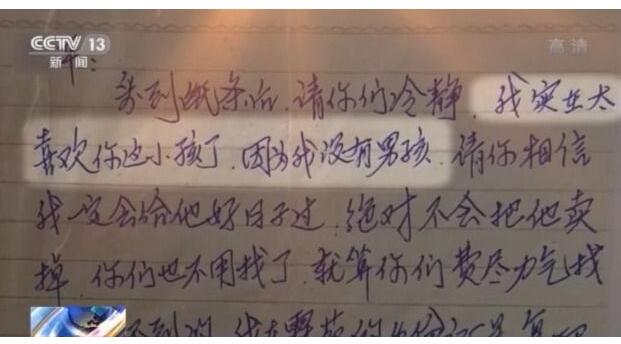 CCTV 13
新闻
高清
条后,请你们冷静,我实在太
喜欢你这小孩了,因为我没有男孩,请你相信
我一定会给他好日子过,绝对不会把他卖
掉,你们也不用找了,就算你们费尽力气找